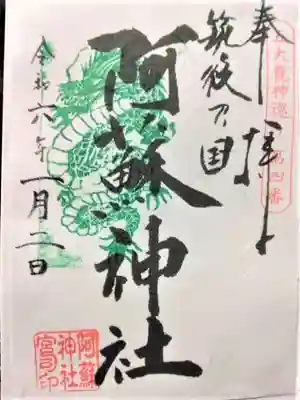 大龍神巡
第四番
奉拝
筑後乃国
阿蘇神社
令和六年一月二日
阿蘇
神社
宮司印